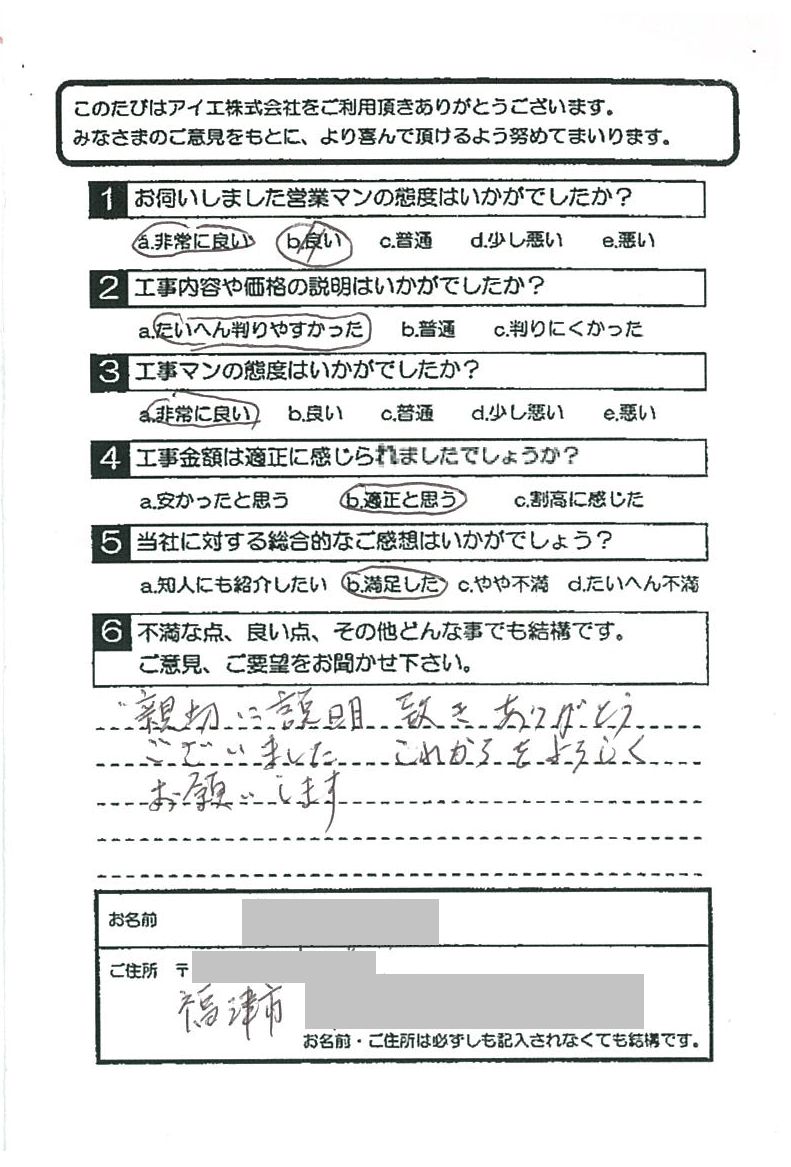 このたびはアイエ株式会社をご利用頂きありがとうございます。
みなさまのご意見をもとに、より喜んで頂けるよう努めてまいります。
1 お伺いしました営業マンの態度はいかがでしたか？
a.非常に良い b.良い c.普通 d.少し悪い e.悪い
2 工事内容や価格の説明はいかがでしたか？
a.たいへん判りやすかった b.普通 c.判りにくかった
3 工事マンの態度はいかがでしたか？
a.非常に良い b.良い c.普通 d.少し悪い e.悪い
4 工事金額は適正に感じられましたでしょうか？
a.安かったと思う b.適正と思う c.割高に感じた
5 当社に対する総合的なご感想はいかがでしょう？
a.知人にも紹介したい b.満足した c.やや不満 d.たいへん不満
6 不満な点、良い点、その他どんな事でも結構です。
ご意見、ご要望をお聞かせ下さい。
親切に説明 致き ありがとう
ございました これからもよろしく
お願いします
お名前
ご住所 〒
福津市
お名前・ご住所は必ずしも記入されなくても結構です。